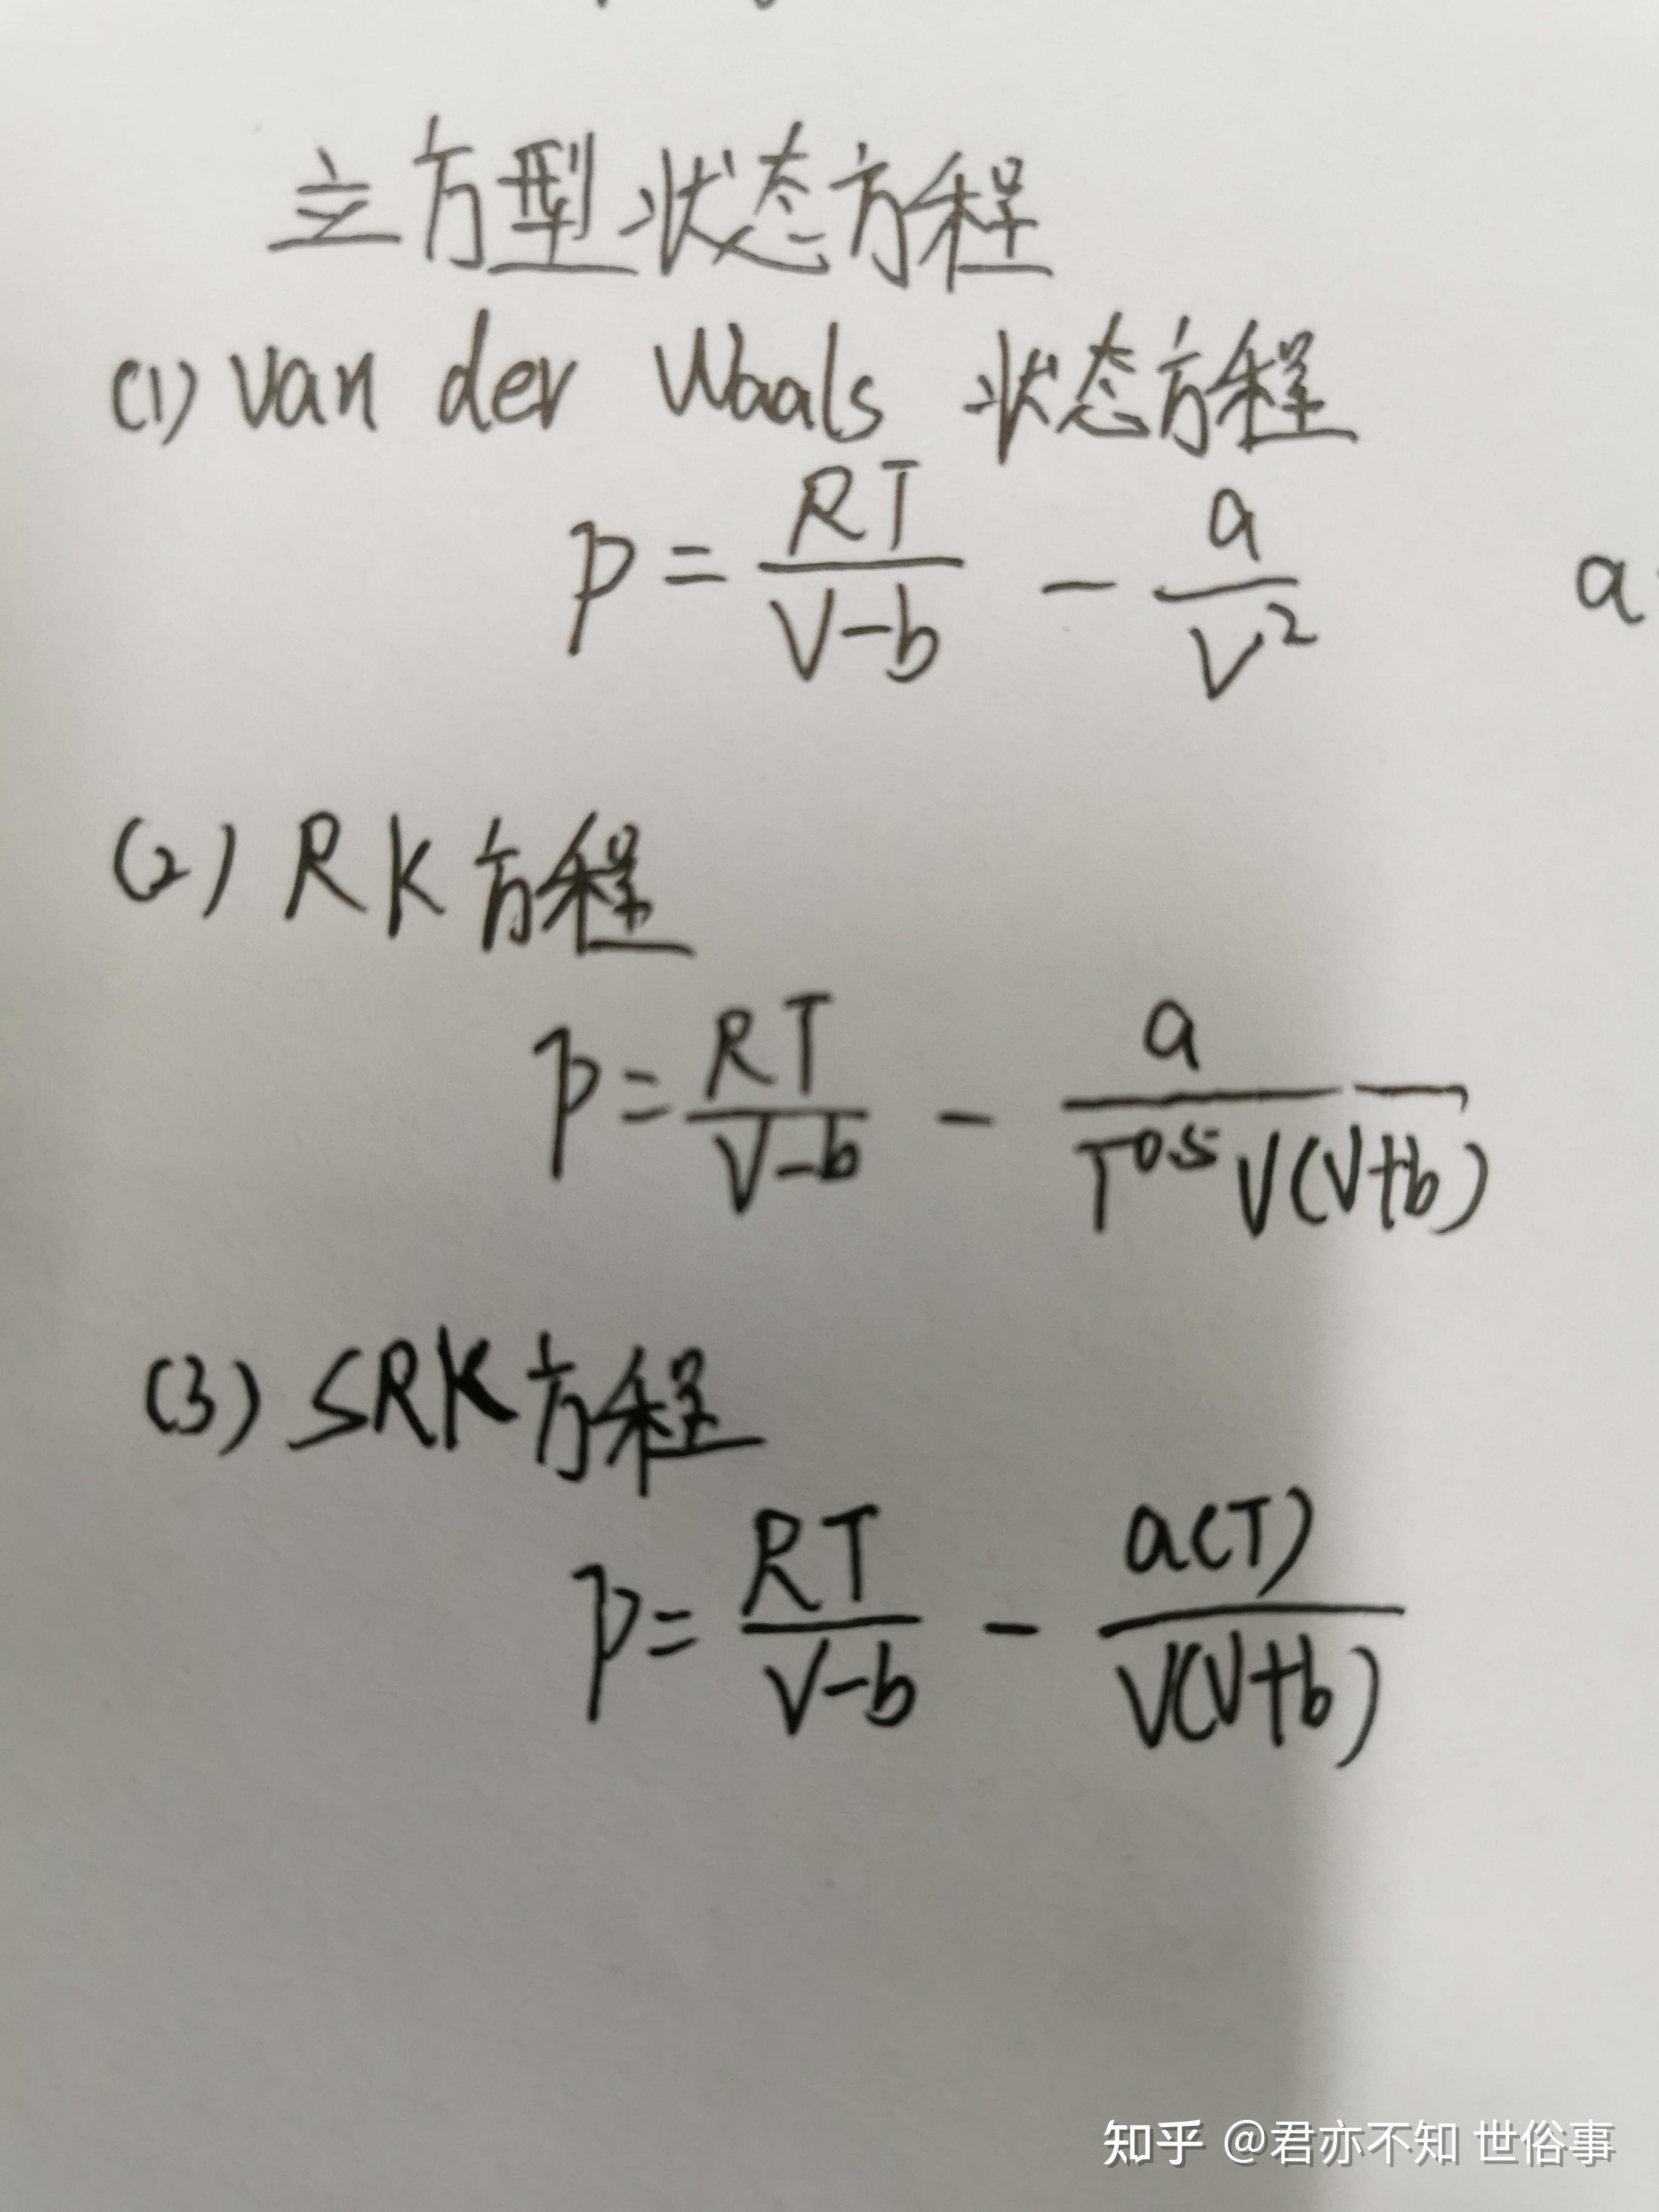 立方型状态方程
(1) van der Waals 状态方程
P = RT/(V-b) - a/V² a
(2) RK方程
P = RT/(V-b) - a/(T^0.5 V(V+b))
(3) SRK方程
P = RT/(V-b) - a(T)/(V(V+b))
知乎 @君亦不知 世俗事